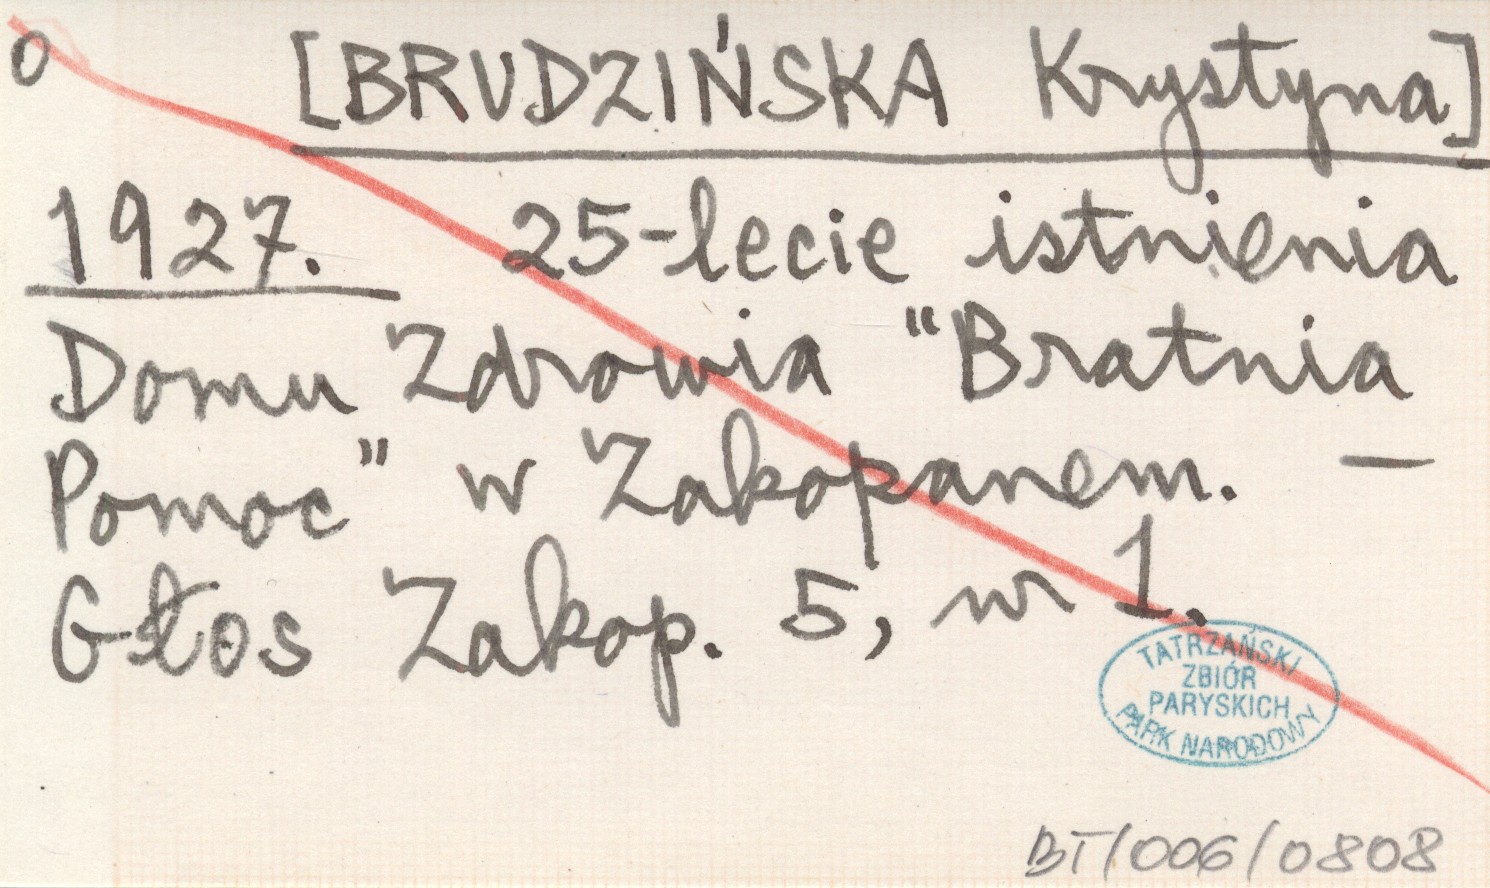 o [BRUDZIŃSKA Krystyna]
1927. 25-lecie istnienia
Domu Zdrowia "Bratnia
Pomoc" w Zakopanem. —
Głos Zakop. 5, nr 1.
TATRZAŃSKI
ZBIÓR
PARYSKICH
PARK NARODOWY
BT/006/0808